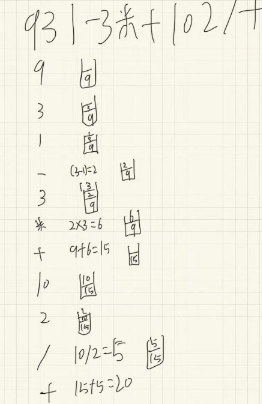 931-3*+102/+
9 9
3 3 9
1 1 3 9
- (3-1)=2 2 9
3 3 2 9
* 2×3=6 6 9
+ 9+6=15 15
10 10 15
2 2 10 15
/ 10/2=5 5 15
+ 15+5=20